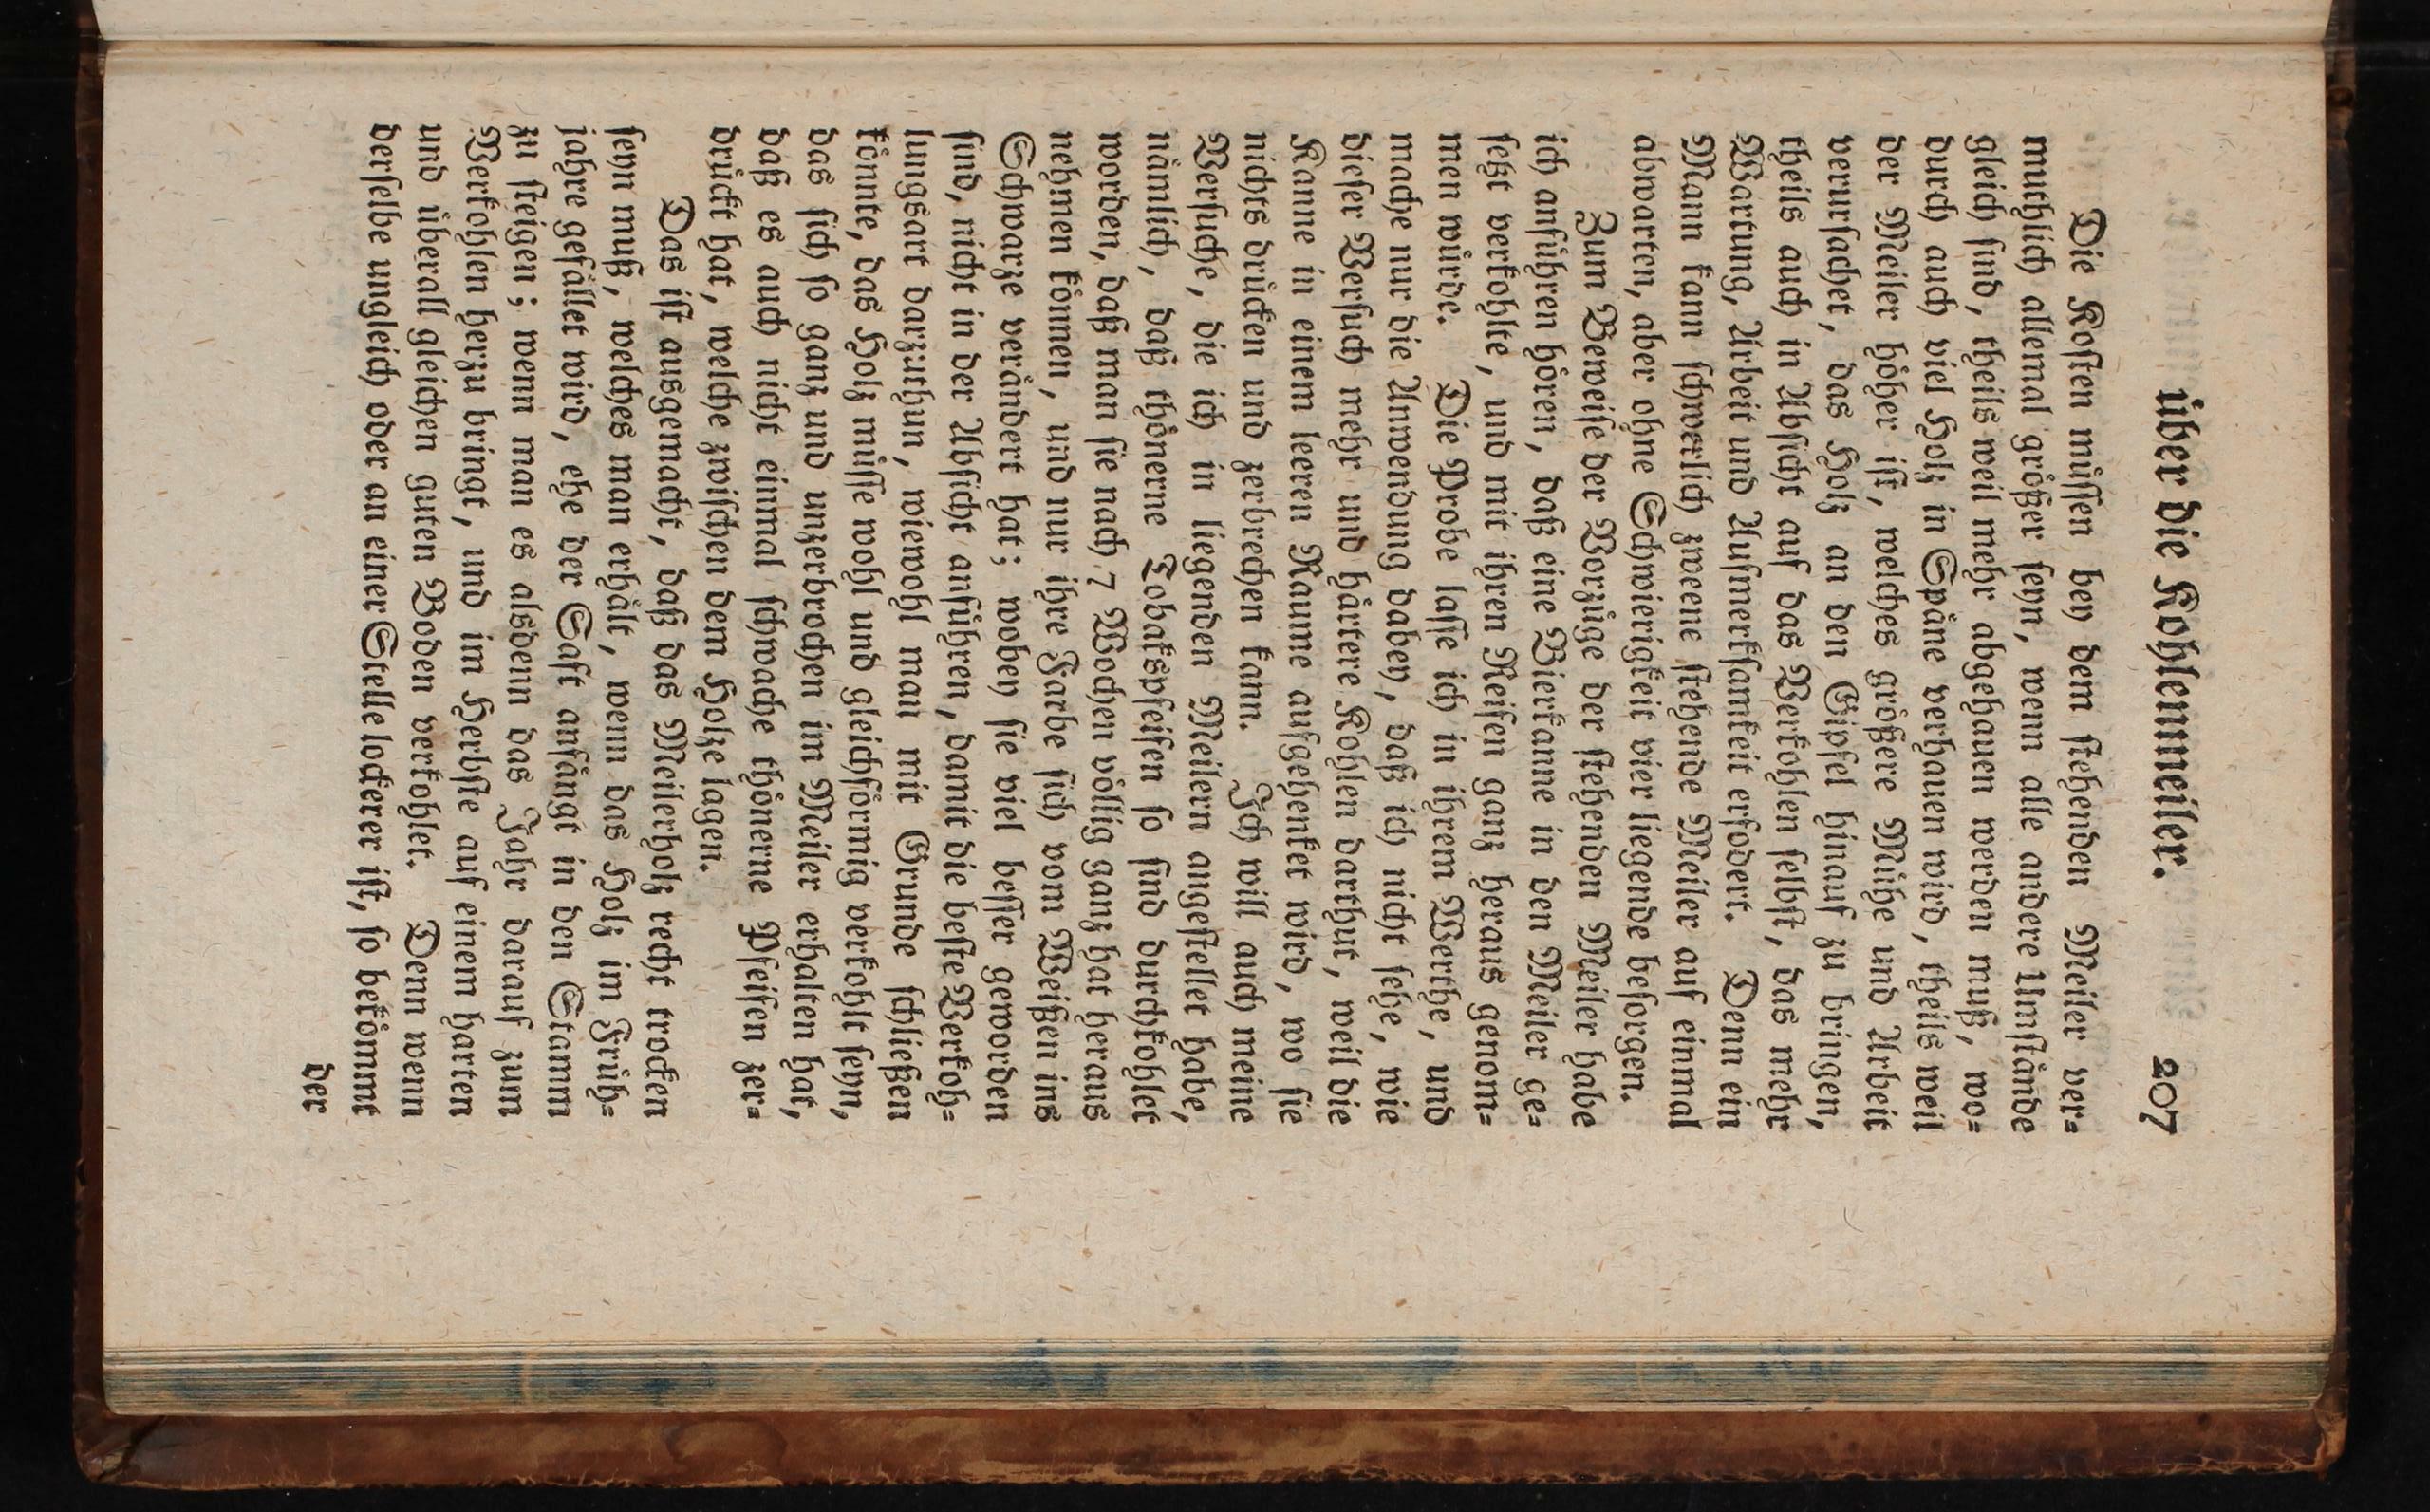 über die Kohlenmeiler. 207
Die Kosten müssen bey dem stehenden Meiler ver=
muthlich allemal größer seyn, wenn alle andere Umstände
gleich sind, theils weil mehr abgehauen werden muß, wo=
durch auch viel Holz in Späne verhauen wird, theils weil
der Meiler höher ist, welches größere Mühe und Arbeit
verursachet, das Holz an den Gipfel hinauf zu bringen,
theils auch in Absicht auf das Verkohlen selbst, das mehr
Wartung, Arbeit und Aufmerksamkeit erfodert. Denn ein
Mann kann schwerlich zweene stehende Meiler auf einmal
abwarten, aber ohne Schwierigkeit vier liegende besorgen.
Zum Beweise der Vorzüge der stehenden Meiler habe
ich anführen hören, daß eine Bierkanne in den Meiler ge=
setzt verkohlte, und mit ihren Reifen ganz heraus genom=
men würde. Die Probe lasse ich in ihrem Werthe, und
mache nur die Anwendung dabey, daß ich nicht sehe, wie
dieser Versuch mehr und härtere Kohlen darthut, weil die
Kanne in einem leeren Raume aufgehenket wird, wo sie
nichts drücken und zerbrechen kann. Ich will auch meine
Versuche, die ich in liegenden Meilern angestellet habe,
nämlich, daß thönerne Tobakspfeifen so sind durchkohlet
worden, daß man sie nach 7 Wochen völlig ganz hat heraus
nehmen können, und nur ihre Farbe sich vom Weißen ins
Schwarze verändert hat; wobey sie viel besser geworden
sind, nicht in der Absicht anführen, damit die beste Verkoh=
lungsart darzuthun, wiewohl man mit Grunde schließen
könnte, das Holz müsse wohl und gleichförmig verkohlt seyn,
das sich so ganz und unzerbrochen im Meiler erhalten hat,
daß es auch nicht einmal schwache thönerne Pfeifen zer=
drückt hat, welche zwischen dem Holze lagen.
Das ist ausgemacht, daß das Meilerholz recht trocken
seyn muß, welches man erhält, wenn das Holz im Früh=
jahre gefället wird, ehe der Saft anfängt in den Stamm
zu steigen; wenn man es alsdenn das Jahr darauf zum
Verkohlen herzu bringt, und im Herbste auf einem harten
und überall gleichen guten Boden verkohlet. Denn wenn
derselbe ungleich oder an einer Stelle lockerer ist, so bekömmt
der